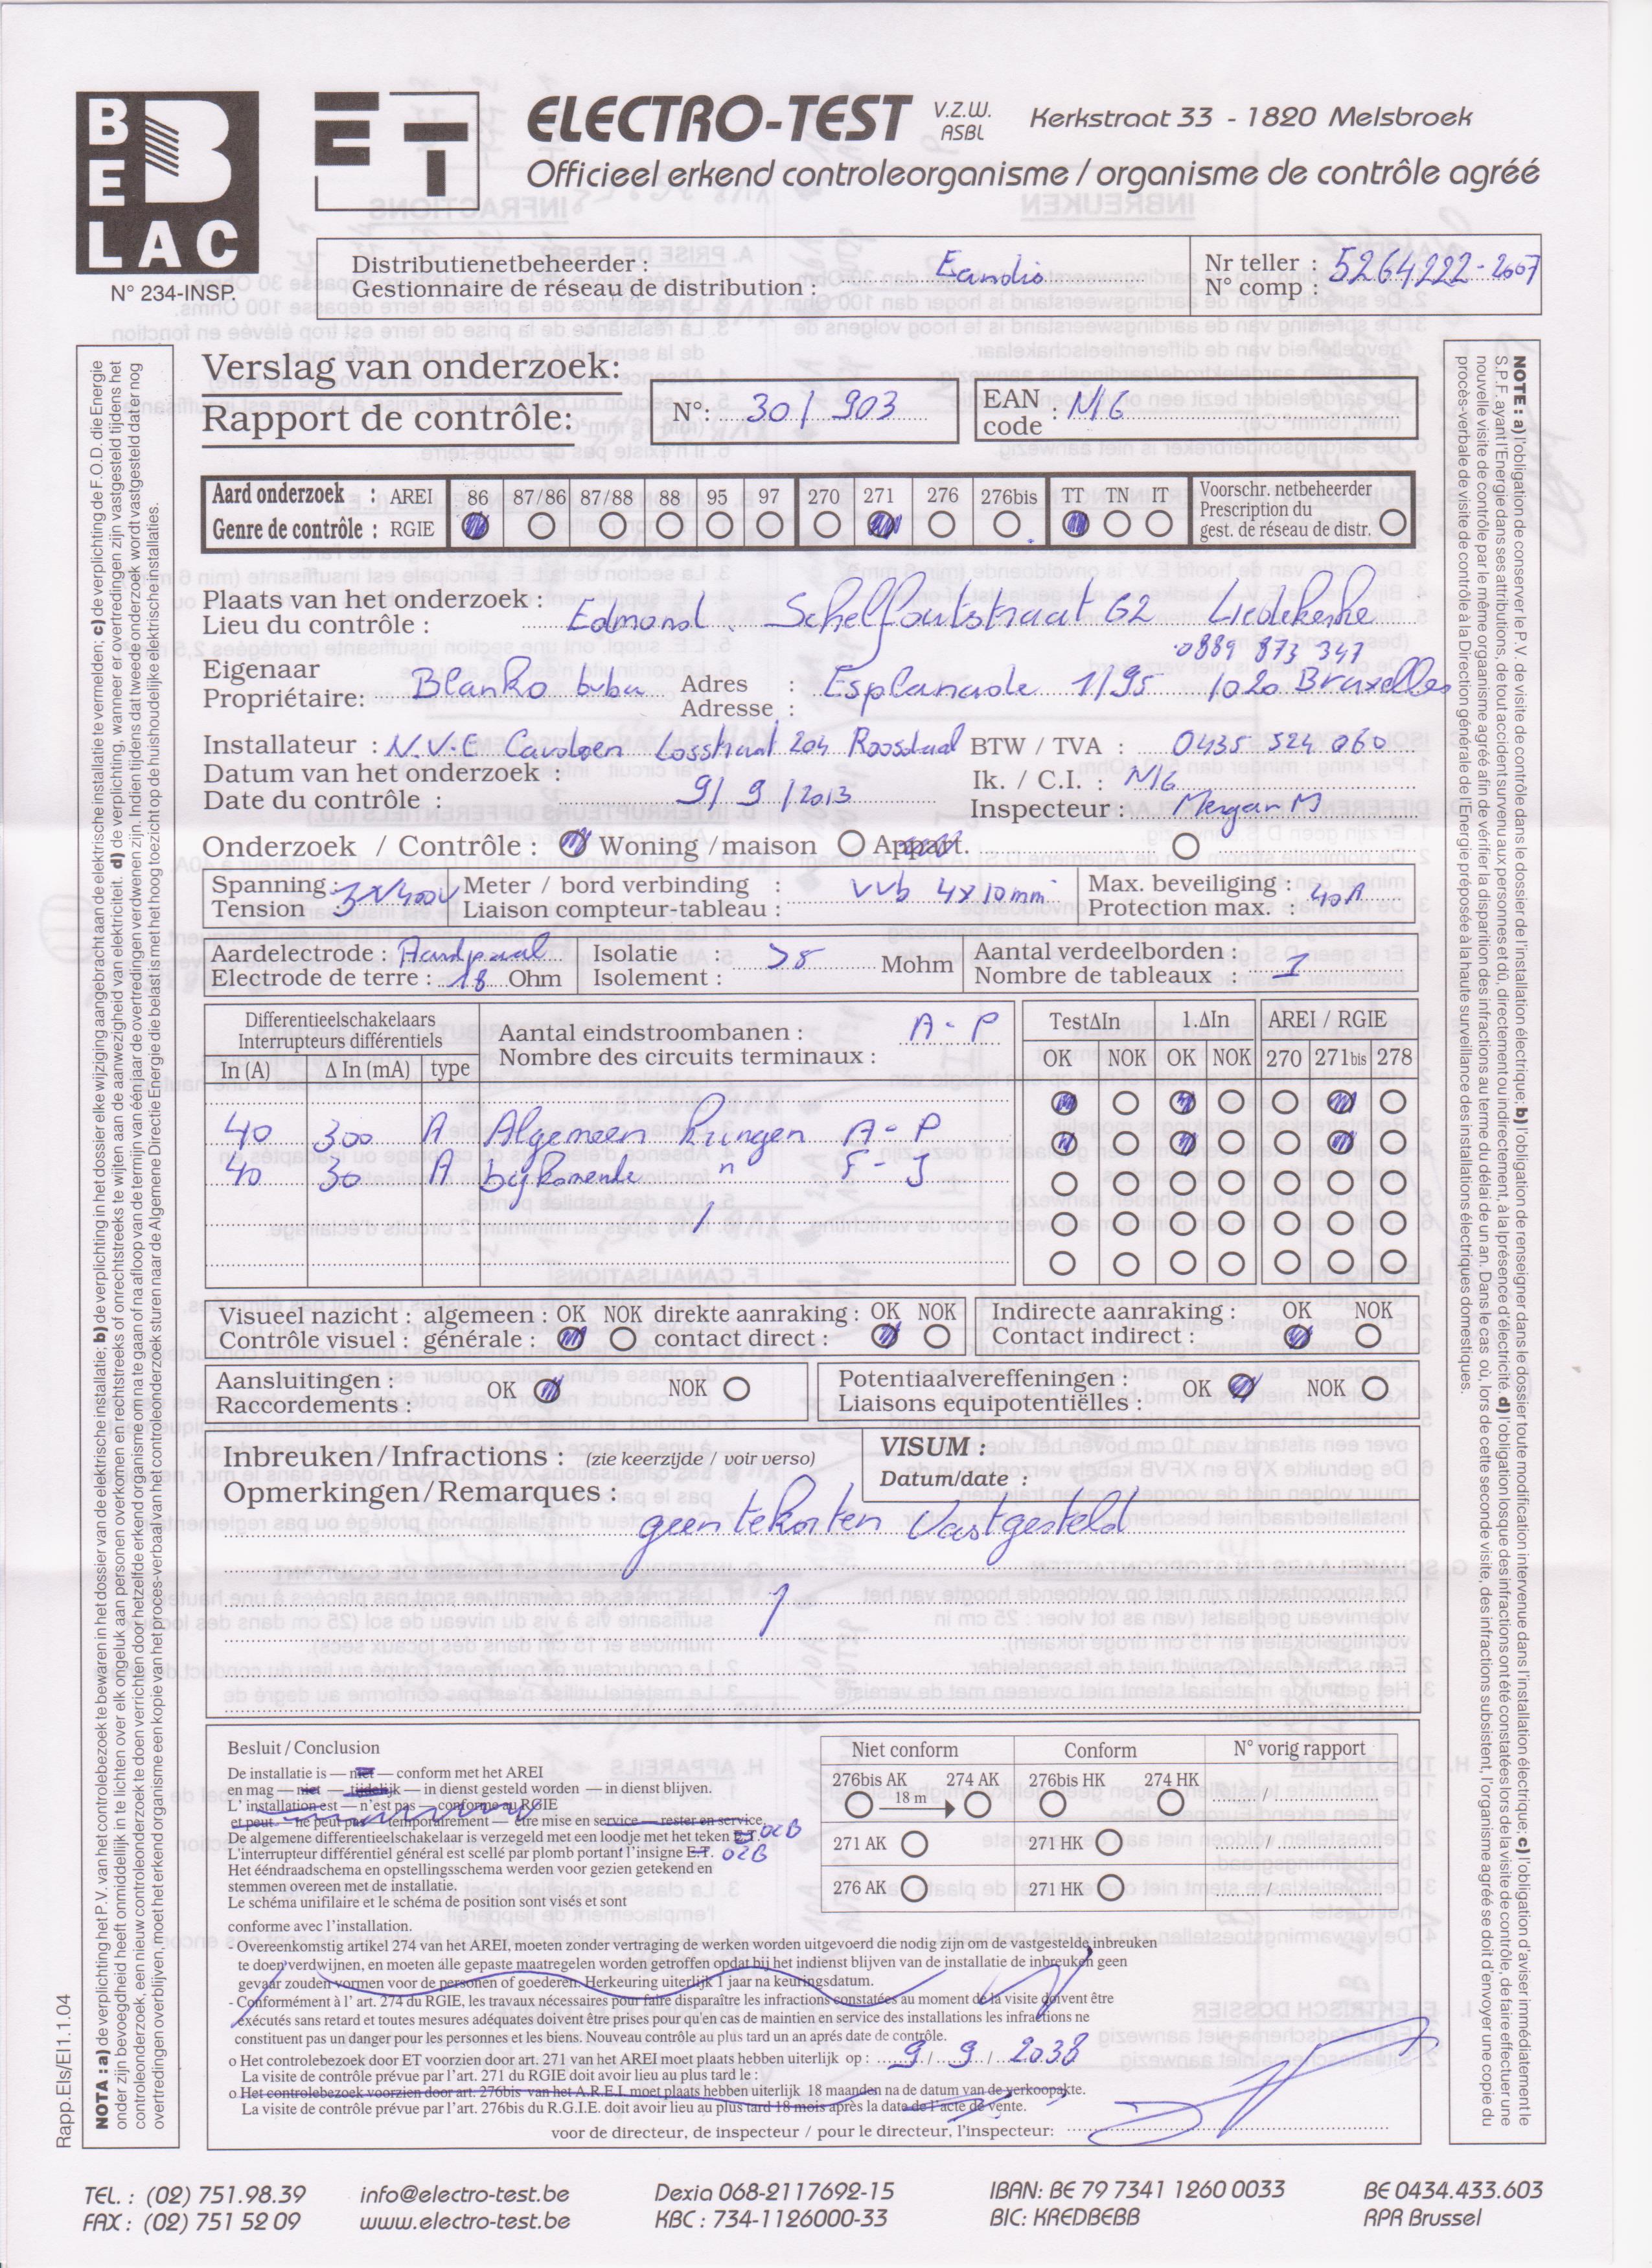 BELAC
N° 234-INSP.
ET
ELECTRO-TEST V.Z.W. ASBL Kerkstraat 33 - 1820 Melsbroek
Officieel erkend controleorganisme / organisme de contrôle agréé
Distributienetbeheerder : Eandis
Gestionnaire de réseau de distribution :
Nr teller : 5264222-2007
N° comp :
Verslag van onderzoek:
Rapport de contrôle:
N°: 30 / 903
EAN code : N/G
Aard onderzoek : AREI 86 87/86 87/88 88 95 97 270 271 276 276bis TT TN IT Voorschr. netbeheerder
Genre de contrôle : RGIE Prescription du gest. de réseau de distr.
Plaats van het onderzoek : Edmond Schelfoutstraat 62 Liedekerke
Lieu du contrôle :
0889 873 347
Eigenaar Blanko bvba Adres : Esplanade 1/95 1020 Bruxelles
Propriétaire: Adresse :
Installateur : N.V. E Losstraat 204 Roosdaal BTW / TVA : 0435 524 060
Datum van het onderzoek : 9 / 9 / 2013 Ik. / C.I. : N/G
Date du contrôle : Inspecteur : Mergan M
Onderzoek / Contrôle : Woning / maison Appart.
Spanning : 3x400V Meter / bord verbinding : VVb 4x10mm Max. beveiliging : 40A
Tension Liaison compteur-tableau : Protection max. :
Aardelectrode : Aardpaal Isolatie : >8 Mohm Aantal verdeelborden : 1
Electrode de terre : 18 Ohm Isolement : Nombre de tableaux :
Differentieelschakelaars Aantal eindstroombanen : A - P TestΔIn 1.ΔIn AREI / RGIE
Interrupteurs différentiels Nombre des circuits terminaux :
In (A) Δ In (mA) type OK NOK OK NOK 270 271bis 278
40 300 A Algemeen kringen A - P
40 30 A bijkomende " F - J
Visueel nazicht : algemeen : OK NOK direkte aanraking : OK NOK Indirecte aanraking : OK NOK
Contrôle visuel : générale : contact direct : Contact indirect :
Aansluitingen : OK NOK Potentiaalvereffeningen : OK NOK
Raccordements : Liaisons equipotentiëlles :
Inbreuken/Infractions : (zie keerzijde / voir verso) VISUM :
Opmerkingen/Remarques : Datum/date :
geen tekorten vastgesteld
Besluit / Conclusion
De installatie is — niet — conform met het AREI
en mag — niet — tijdelijk — in dienst gesteld worden — in dienst blijven.
L' installation est — n'est pas — conforme au RGIE
et peut — ne peut pas — temporairement — être mise en service — rester en service.
De algemene differentieelschakelaar is verzegeld met een loodje met het teken E.T. OCB
L'interrupteur différentiel général est scellé par plomb portant l'insigne E.T. OCB
Het ééndraadschema en opstellingsschema werden voor gezien getekend en
stemmen overeen met de installatie.
Le schéma unifilaire et le schéma de position sont visés et sont
conforme avec l'installation.
Niet conform Conform N° vorig rapport
276bis AK 18 m 274 AK 276bis HK 274 HK /
271 AK 271 HK /
276 AK 271 HK /
- Overeenkomstig artikel 274 van het AREI, moeten zonder vertraging de werken worden uitgevoerd die nodig zijn om de vastgestelde inbreuken
te doen verdwijnen, en moeten alle gepaste maatregelen worden getroffen opdat bij het indienst blijven van de installatie de inbreuken geen
gevaar zouden vormen voor de personen of goederen. Herkeuring uiterlijk 1 jaar na keuringsdatum.
- Conformément à l' art. 274 du RGIE, les travaux nécessaires pour faire disparaître les infractions constatées au moment de la visite doivent être
exécutés sans retard et toutes mesures adéquates doivent être prises pour qu'en cas de maintien en service des installations les infractions ne
constituent pas un danger pour les personnes et les biens. Nouveau contrôle au plus tard un an aprés date de contrôle.
o Het controlebezoek door ET voorzien door art. 271 van het AREI moet plaats hebben uiterlijk op : 9 / 9 / 2038
La visite de contrôle prévue par l'art. 271 du RGIE doit avoir lieu au plus tard le :
o Het controlebezoek voorzien door art. 276bis van het A.R.E.I. moet plaats hebben uiterlijk 18 maanden na de datum van de verkoopakte.
La visite de contrôle prévue par l'art. 276bis du R.G.I.E. doit avoir lieu au plus tard 18 mois après la date de l'acte de vente.
voor de directeur, de inspecteur / pour le directeur, l'inspecteur:
Rapp.Els/EI1.1.04
NOTA : a) de verplichting het P.V. van het controlebezoek te bewaren in het dossier van de elektrische installatie; b) de verplichting in het dossier elke wijziging aangebracht aan de elektrische installatie te vermelden; c) de verplichting de F.O.D. die Energie
onder zijn bevoegdheid heeft onmiddellijk in te lichten over elk ongeluk aan personen overkomen en rechtstreeks of onrechtstreeks te wijten aan de aanwezigheid van elektriciteit. d) de verplichting, wanneer er overtredingen zijn vastgesteld tijdens het
controleonderzoek, een nieuw controleonderzoek te doen verrichten door hetzelfde erkend organisme om na te gaan of na afloop van de termijn van één jaar de overtredingen verdwenen zijn. Indien tijdens dat tweede onderzoek wordt vastgesteld dat er nog
overtredingen overblijven, moet het erkend organisme een kopie van het proces-verbaal van het controleonderzoek sturen naar de Algemene Directie Energie die belast is met het hoog toezicht op de huishoudelijke elektrische installaties.
NOTE : a) l'obligation de conserver le P.V. de visite de contrôle dans le dossier de l'installation électrique; b) l'obligation de renseigner dans le dossier toute modification intervenue dans l'installation électrique; c) l'obligation d'aviser immédiatement le
S.P.F. ayant l'Energie dans ses attributions, de tout accident survenu aux personnes et dû, directement ou indirectement, à la présence d'électricité. d) l'obligation losque des infractions ont été constatées lors de la visite de contrôle, de faire effectuer une
nouvelle visite de contrôle par le même organisme agréé afin de vérifier la disparition des infractions au terme du délai de un an. Dans le cas où, lors de cette seconde visite, des infractions subsistent, l'organisme agréé se doit d'envoyer une copie du
procès-verbale de visite de contrôle à la Direction générale de l'Energie préposée à la haute surveillance des installations électriques domestiques.
TEL. : (02) 751.98.39 info@electro-test.be Dexia 068-2117692-15 IBAN: BE 79 7341 1260 0033 BE 0434.433.603
FAX : (02) 751 52 09 www.electro-test.be KBC : 734-1126000-33 BIC: KREDBEBB RPR Brussel